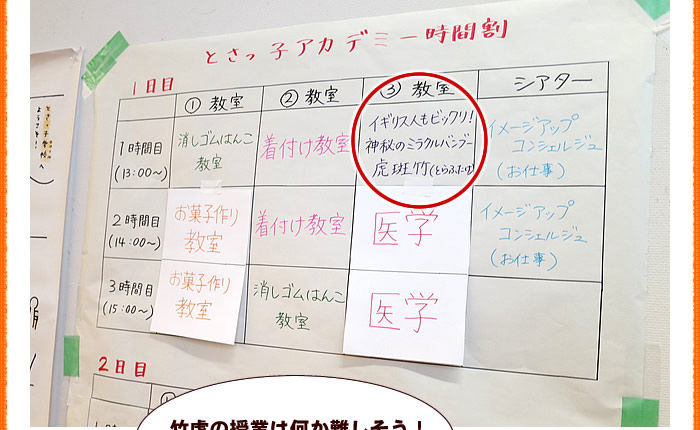 とさっ子アカデミー時間割
1日目
① 教室
② 教室
③ 教室
シアター
1時間目
(13:00〜)
消しゴムはんこ
教室
着付け教室
イギリス人もビックリ!
神秘のミラクルバンブー
虎斑竹(とらふだけ)
イメージアップ
コンシェルジュ
(お仕事)
2時間目
(14:00〜)
お菓子作り
教室
着付け教室
医学
イメージアップ
コンシェルジュ
(お仕事)
3時間目
(15:00〜)
お菓子作り
教室
消しゴムはんこ
教室
医学
2日目
竹虎の授業は何か難しそう!